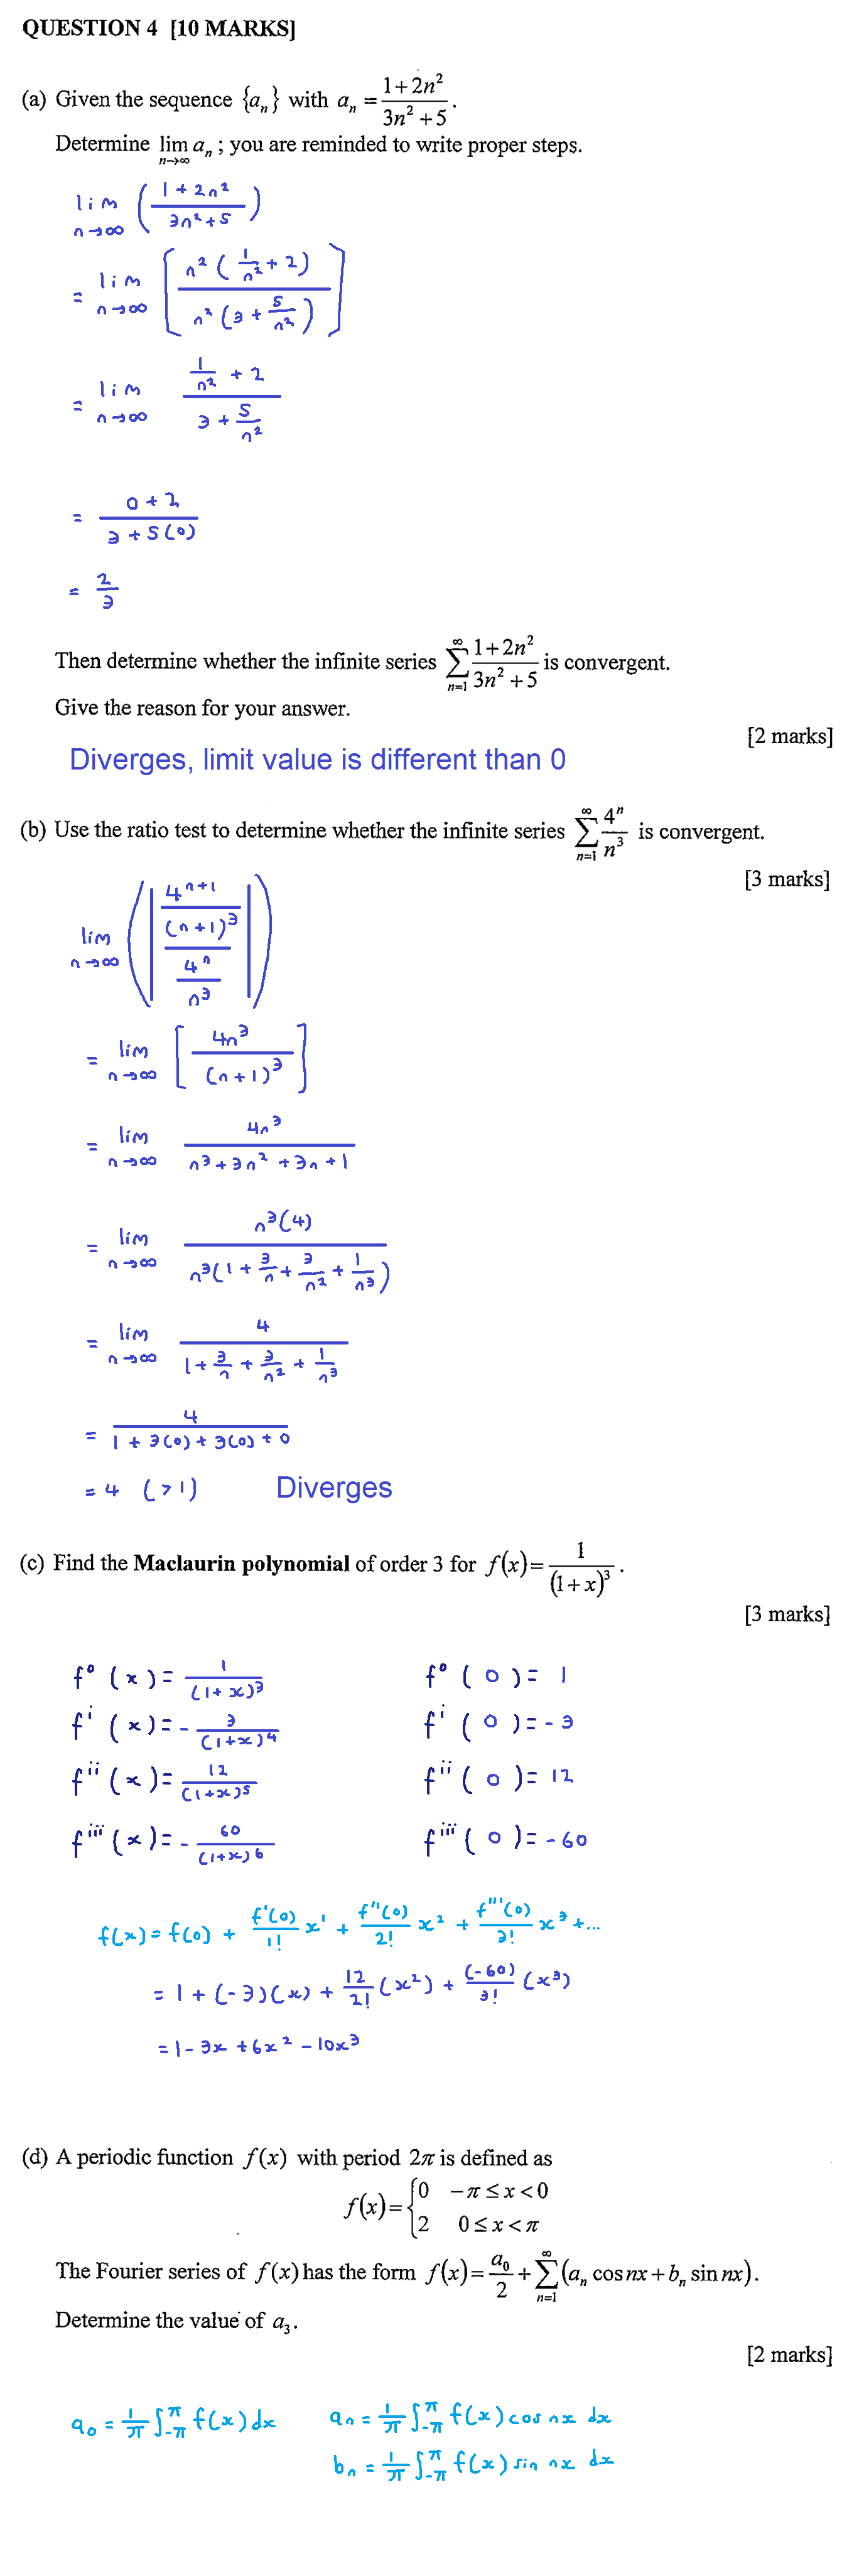 QUESTION 4 [10 MARKS]
(a) Given the sequence {a_n} with a_n = (1+2n²)/(3n²+5).
Determine lim_{n→∞} a_n ; you are reminded to write proper steps.
lim_{n→∞} ((1+2n²)/(3n²+5))
= lim_{n→∞} [n²(1/n²+2) / n²(3+5/n²)]
= lim_{n→∞} (1/n²+2)/(3+5/n²)
= (0+2)/(3+5(0))
= 2/3
Then determine whether the infinite series ∑_{n=1}^{∞} (1+2n²)/(3n²+5) is convergent.
Give the reason for your answer.
[2 marks]
Diverges, limit value is different than 0
(b) Use the ratio test to determine whether the infinite series ∑_{n=1}^{∞} 4ⁿ/n³ is convergent.
[3 marks]
lim_{n→∞} (| (4^{n+1}/(n+1)³) / (4ⁿ/n³) |)
= lim_{n→∞} [4n³/(n+1)³]
= lim_{n→∞} 4n³/(n³+3n²+3n+1)
= lim_{n→∞} n³(4)/n³(1+3/n+3/n²+1/n³)
= lim_{n→∞} 4/(1+3/n+3/n²+1/n³)
= 4/(1+3(0)+3(0)+0)
= 4 (>1) Diverges
(c) Find the Maclaurin polynomial of order 3 for f(x)= 1/(1+x)³.
[3 marks]
f⁰(x)= 1/(1+x)³ f⁰(0)= 1
fⁱ(x)= -3/(1+x)⁴ fⁱ(0)= -3
fⁱⁱ(x)= 12/(1+x)⁵ fⁱⁱ(0)= 12
fⁱⁱⁱ(x)= -60/(1+x)⁶ fⁱⁱⁱ(0)= -60
f(x)= f(0) + f'(0)/1! x¹ + f''(0)/2! x² + f'''(0)/3! x³ +...
= 1 + (-3)(x) + 12/2! (x²) + (-60)/3! (x³)
= 1 - 3x + 6x² - 10x³
(d) A periodic function f(x) with period 2π is defined as
f(x)= {0 -π ≤ x < 0
2 0 ≤ x < π
The Fourier series of f(x) has the form f(x)= a₀/2 + ∑_{n=1}^{∞} (a_n cos nx + b_n sin nx).
Determine the value of a₃.
[2 marks]
a₀ = 1/π ∫_{-π}^{π} f(x) dx a_n = 1/π ∫_{-π}^{π} f(x) cos nx dx
b_n = 1/π ∫_{-π}^{π} f(x) sin nx dx